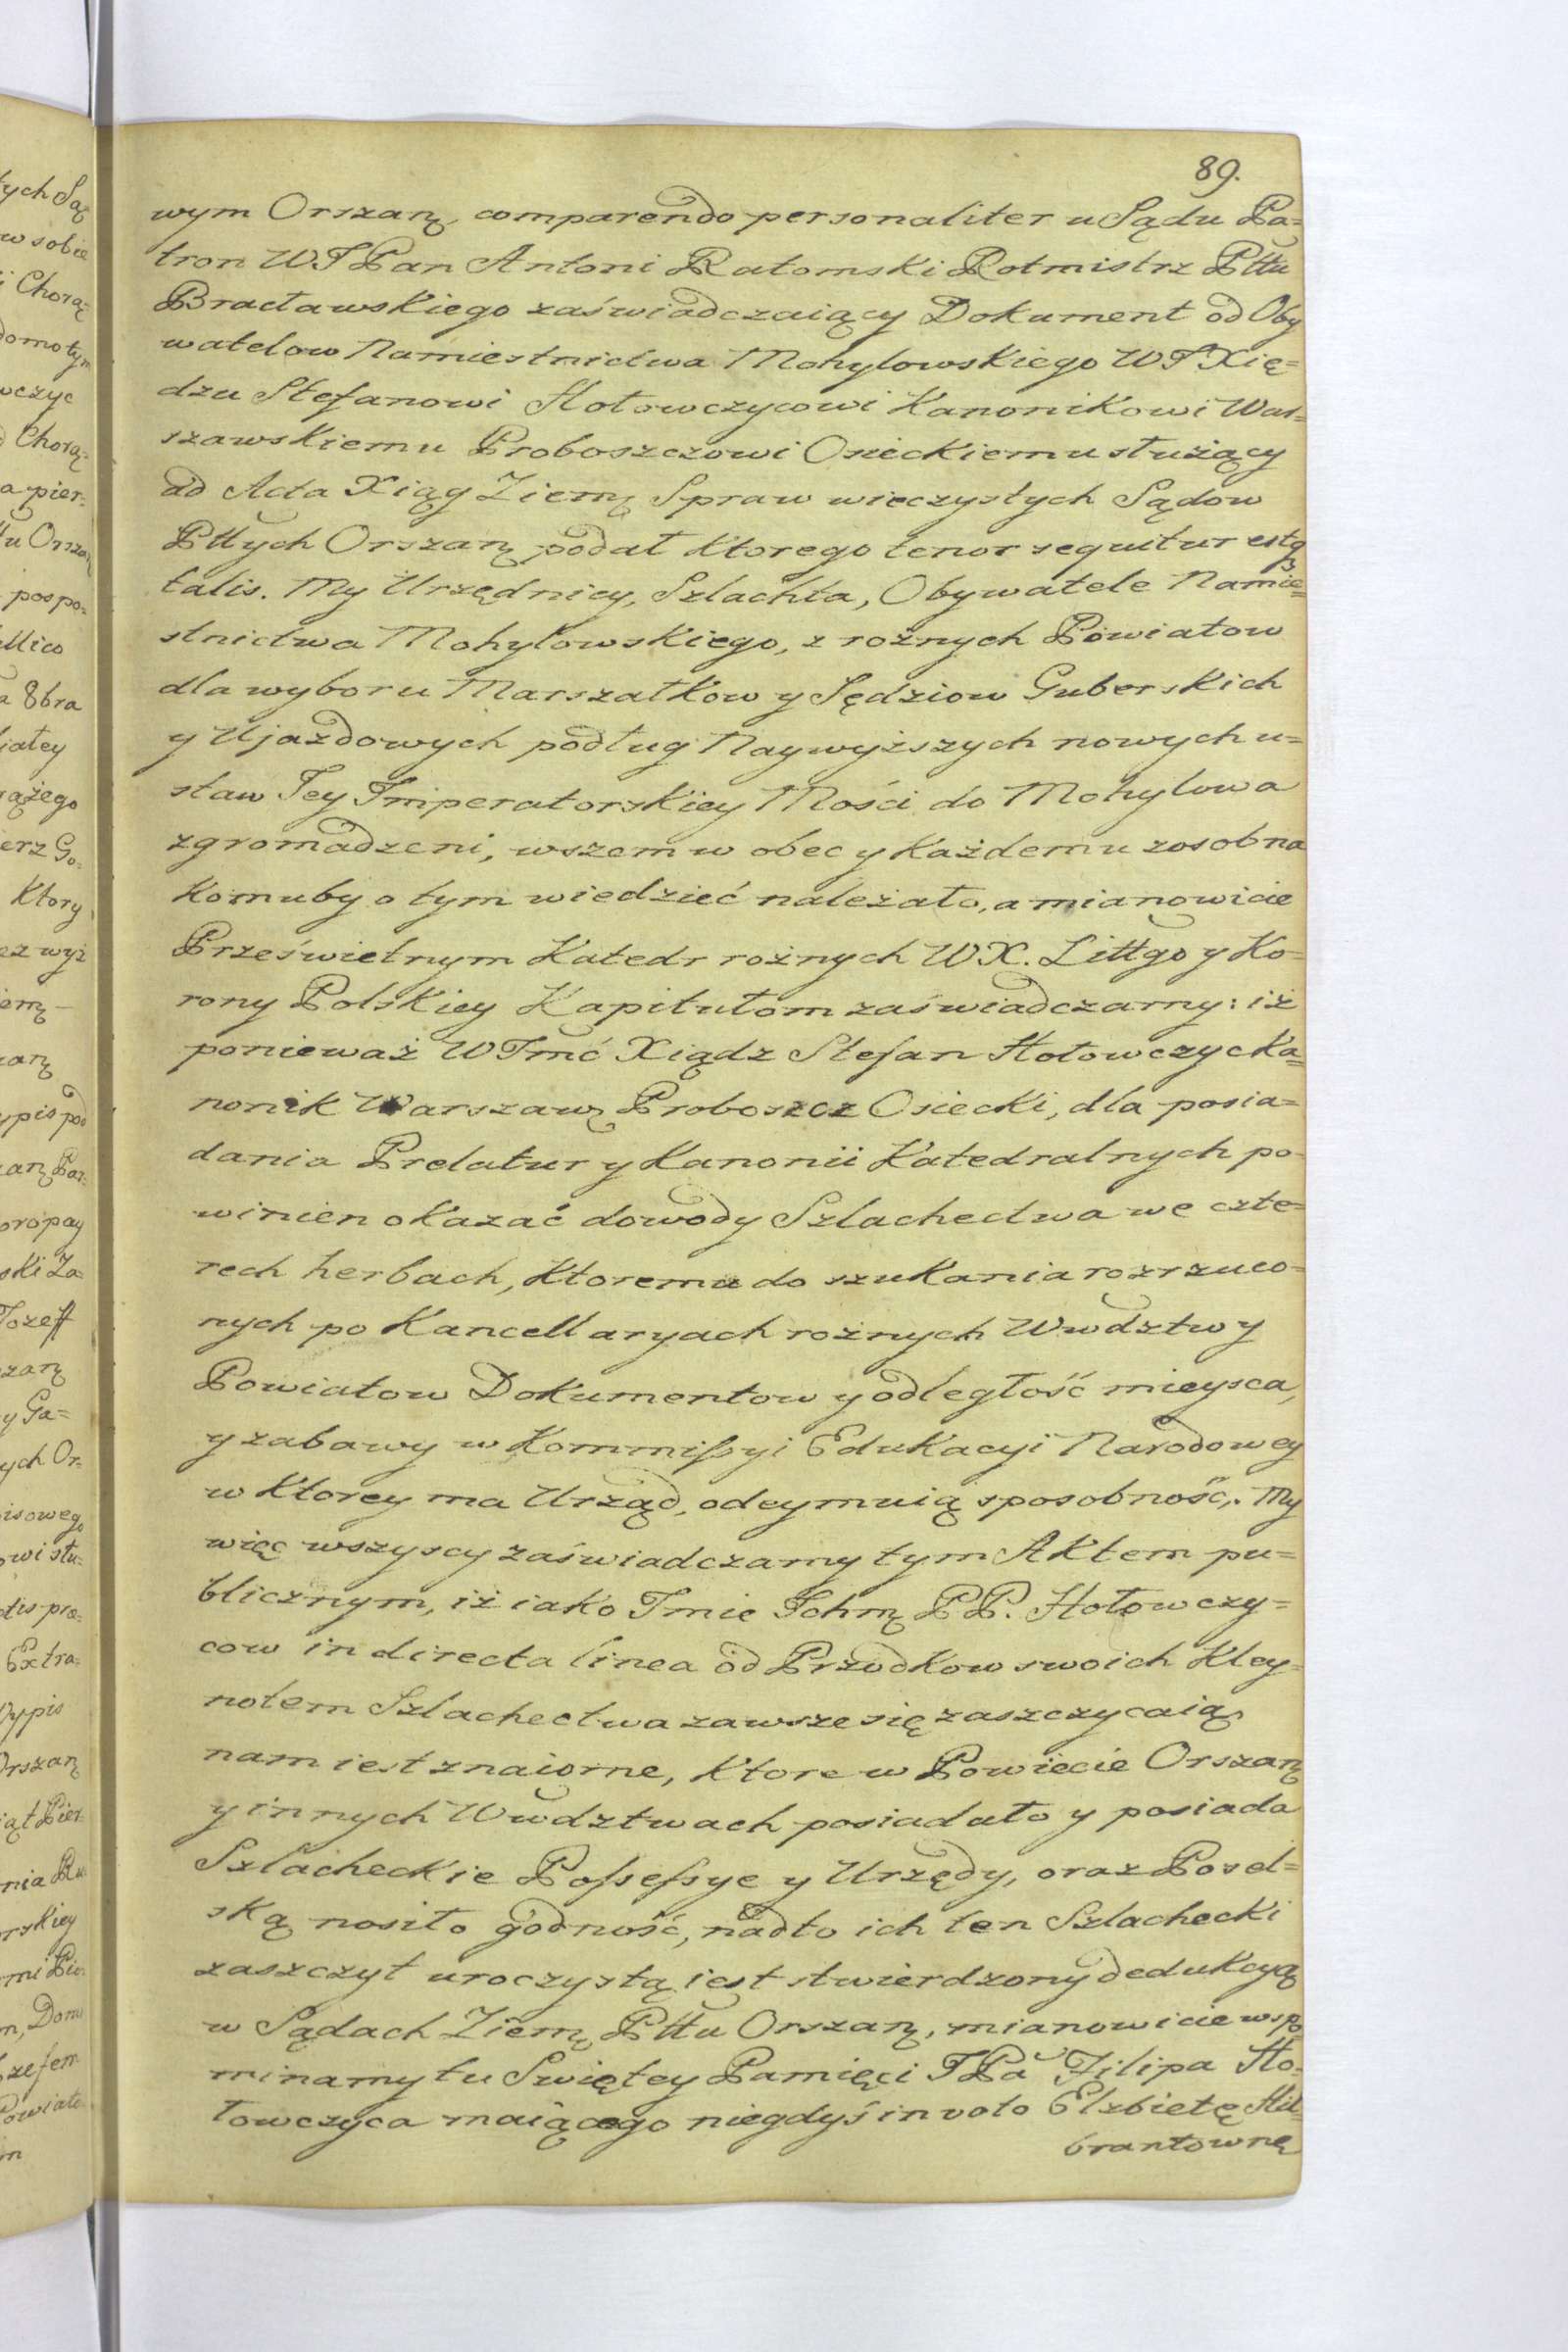 89.
wym Orszan comparendo personaliter u Sądu Pa=
tron WJPan Antoni Ratomski Rotmistrz Pttu
Bracławskiego zaświadczaiący Dokument od Oby
watelow Namiestnictwa Mohylowskiego WJXię=
dzu Stefanowi Hołowczycowi Kanonikowi War=
szawskiemu Proboszczowi Osieckiemu służący
ad Acta Xiąg Ziem Spraw wieczystych Sądow
Pttych Orszan podał ktorego tenor sequitur estq
talis. My Urzędnicy, Szlachta, Obywatele Namie=
stnictwa Mohylowskiego, z rożnych Powiatow
dla wyboru Marszałkow y Sędziow Guberskich
y Ujazdowych podług Naywyższych nowych u=
staw Jey Imperatorskiey Mości do Mohylowa
zgromadzeni, wszem w obec y każdemu zosobna
komuby o tym wiedzieć należało, a mianowicie
Prześwietnym Katedr rożnych WX. Littgo y Ko=
rony Polskiey Kapitułom zaświadczamy: iż
ponieważ WJmć Xiądz Stefan Hołowczyc Ka=
nonik Warszaw Proboszcz Osiecki, dla posia=
dania Prelatur y Kanonii Katedralnych po=
winien okazać dowody Szlachectwa we czte=
rech herbach, ktoremu do szukania rozrzuco=
nych po Kancellaryach rożnych Wwdztw y
Powiatow Dokumentow y odległość mieysca,
y zabawy w Kommissyi Edukacyi Narodowey
w ktorey ma Urząd, odeymuią sposobność,. My
więc wszyscy zaświadczamy tym Aktem pu=
blicznym, iż iako Jmie Ichm PP. Hołowczy=
cow in directa linea od Przodkow swoich Kley=
notem Szlachectwa zawsze się zaszczycaią,
nam iest znaiome, ktore w Powiecie Orszan
y innych Wwdztwach posiadało y posiada
Szlacheckie Possessye y Urzędy, oraz Posel=
ską nosiło godność, nadto ich ten Szlachecki
zaszczyt uroczystą iest stwierdzony dedukcyą
w Sądach Ziem Pttu Orszan, mianowicie wspo
minamy tu Swiętey Pamięci JPa Filipa Ho=
łowczyca maiącego niegdyś in voto Elzbietę Hil=
brantownę